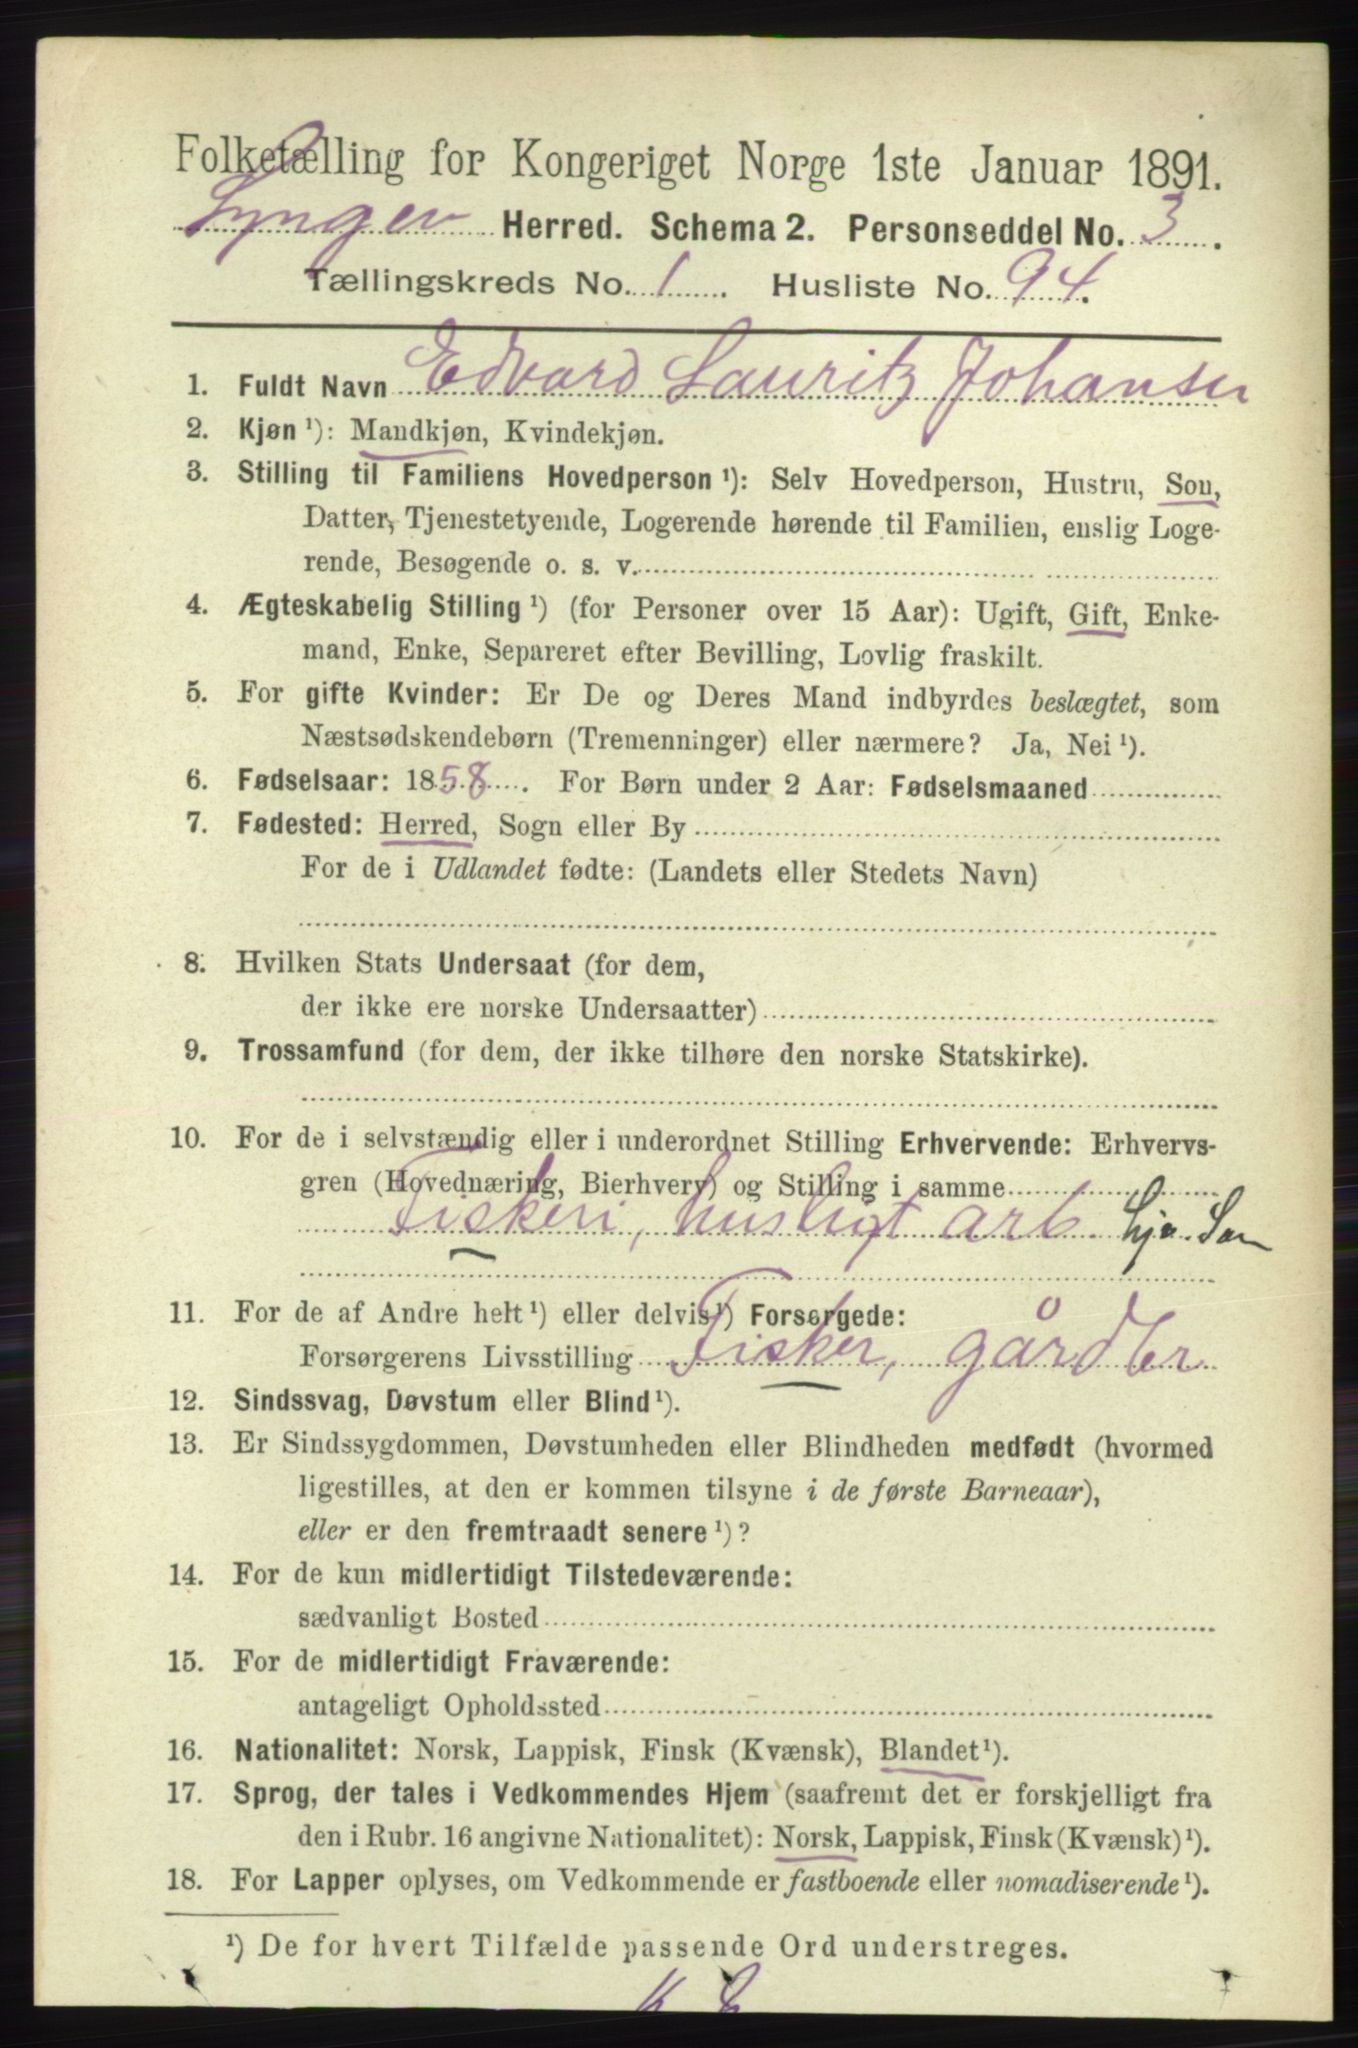 Folketælling for Kongeriget Norge 1ste Januar 1891.
Lyngen Herred. Schema 2. Personseddel No. 3.
Tællingskreds No. 1. Husliste No. 94.
1. Fuldt Navn Edvard Lauritz Johansen
2. Kjøn ¹): Mandkjøn, Kvindekjøn.
3. Stilling til Familiens Hovedperson ¹): Selv Hovedperson, Hustru, Søn,
Datter, Tjenestetyende, Logerende hørende til Familien, enslig Loge-
rende, Besøgende o. s. v.
4. Ægteskabelig Stilling ¹) (for Personer over 15 Aar): Ugift, Gift, Enke-
mand, Enke, Separeret efter Bevilling, Lovlig fraskilt.
5. For gifte Kvinder: Er De og Deres Mand indbyrdes beslægtet, som
Næstsødskendebørn (Tremenninger) eller nærmere? Ja, Nei ¹).
6. Fødselsaar: 1858. For Børn under 2 Aar: Fødselsmaaned
7. Fødested: Herred, Sogn eller By
For de i Udlandet fødte: (Landets eller Stedets Navn)
8. Hvilken Stats Undersaat (for dem,
der ikke ere norske Undersaatter)
9. Trossamfund (for dem, der ikke tilhøre den norske Statskirke).
10. For de i selvstændig eller i underordnet Stilling Erhvervende: Erhvervs-
gren (Hovednæring, Bierhverv) og Stilling i samme
Fiskeri, husligt arb. hja. Søn
11. For de af Andre helt ¹) eller delvis ¹) Forsørgede:
Forsørgerens Livsstilling Fisker, gårdbr
12. Sindssvag, Døvstum eller Blind ¹).
13. Er Sindssygdommen, Døvstumheden eller Blindheden medfødt (hvormed
ligestilles, at den er kommen tilsyne i de første Barneaar),
eller er den fremtraadt senere ¹)?
14. For de kun midlertidigt Tilstedeværende:
sædvanligt Bosted
15. For de midlertidigt Fraværende:
antageligt Opholdssted
16. Nationalitet: Norsk, Lappisk, Finsk (Kvænsk), Blandet ¹).
17. Sprog, der tales i Vedkommendes Hjem (saafremt det er forskjelligt fra
den i Rubr. 16 angivne Nationalitet): Norsk, Lappisk, Finsk (Kvænsk) ¹).
18. For Lapper oplyses, om Vedkommende er fastboende eller nomadiserende ¹).
¹) De for hvert Tilfælde passende Ord understreges.